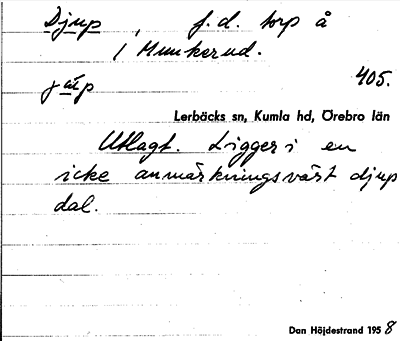 Djup, f.d. torp å
/ Munkerud.
jup 405.
Lerbäcks sn, Kumla hd, Örebro län
Utlagt. Ligger i en
icke anmärkningsvärt djup
dal.
Dan Höjdestrand 1958